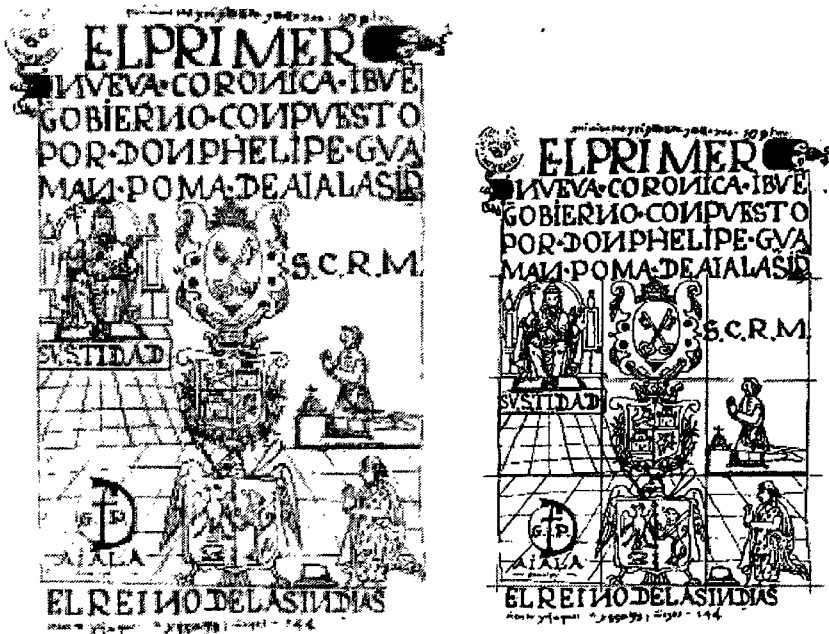 EL PRIMER
NVEVA·CORONICA·IBVE
GOBIERNO·CONPVESTO
POR·DON PHELIPE·GVA
MAN·POMA·DE AIALA SIR
S.C.R.M.
SV.STIDAD
G.P.
AIALA
EL REINO DE LAS INDIAS
EL PRIMER
NVEVA·CORONICA·IBVE
GOBIERNO·CONPVESTO
POR·DON PHELIPE·GVA
MAN·POMA·DE AIALA SIR
S.C.R.M.
SV.STIDAD
G.P.
AIALA
EL REINO DE LAS INDIAS